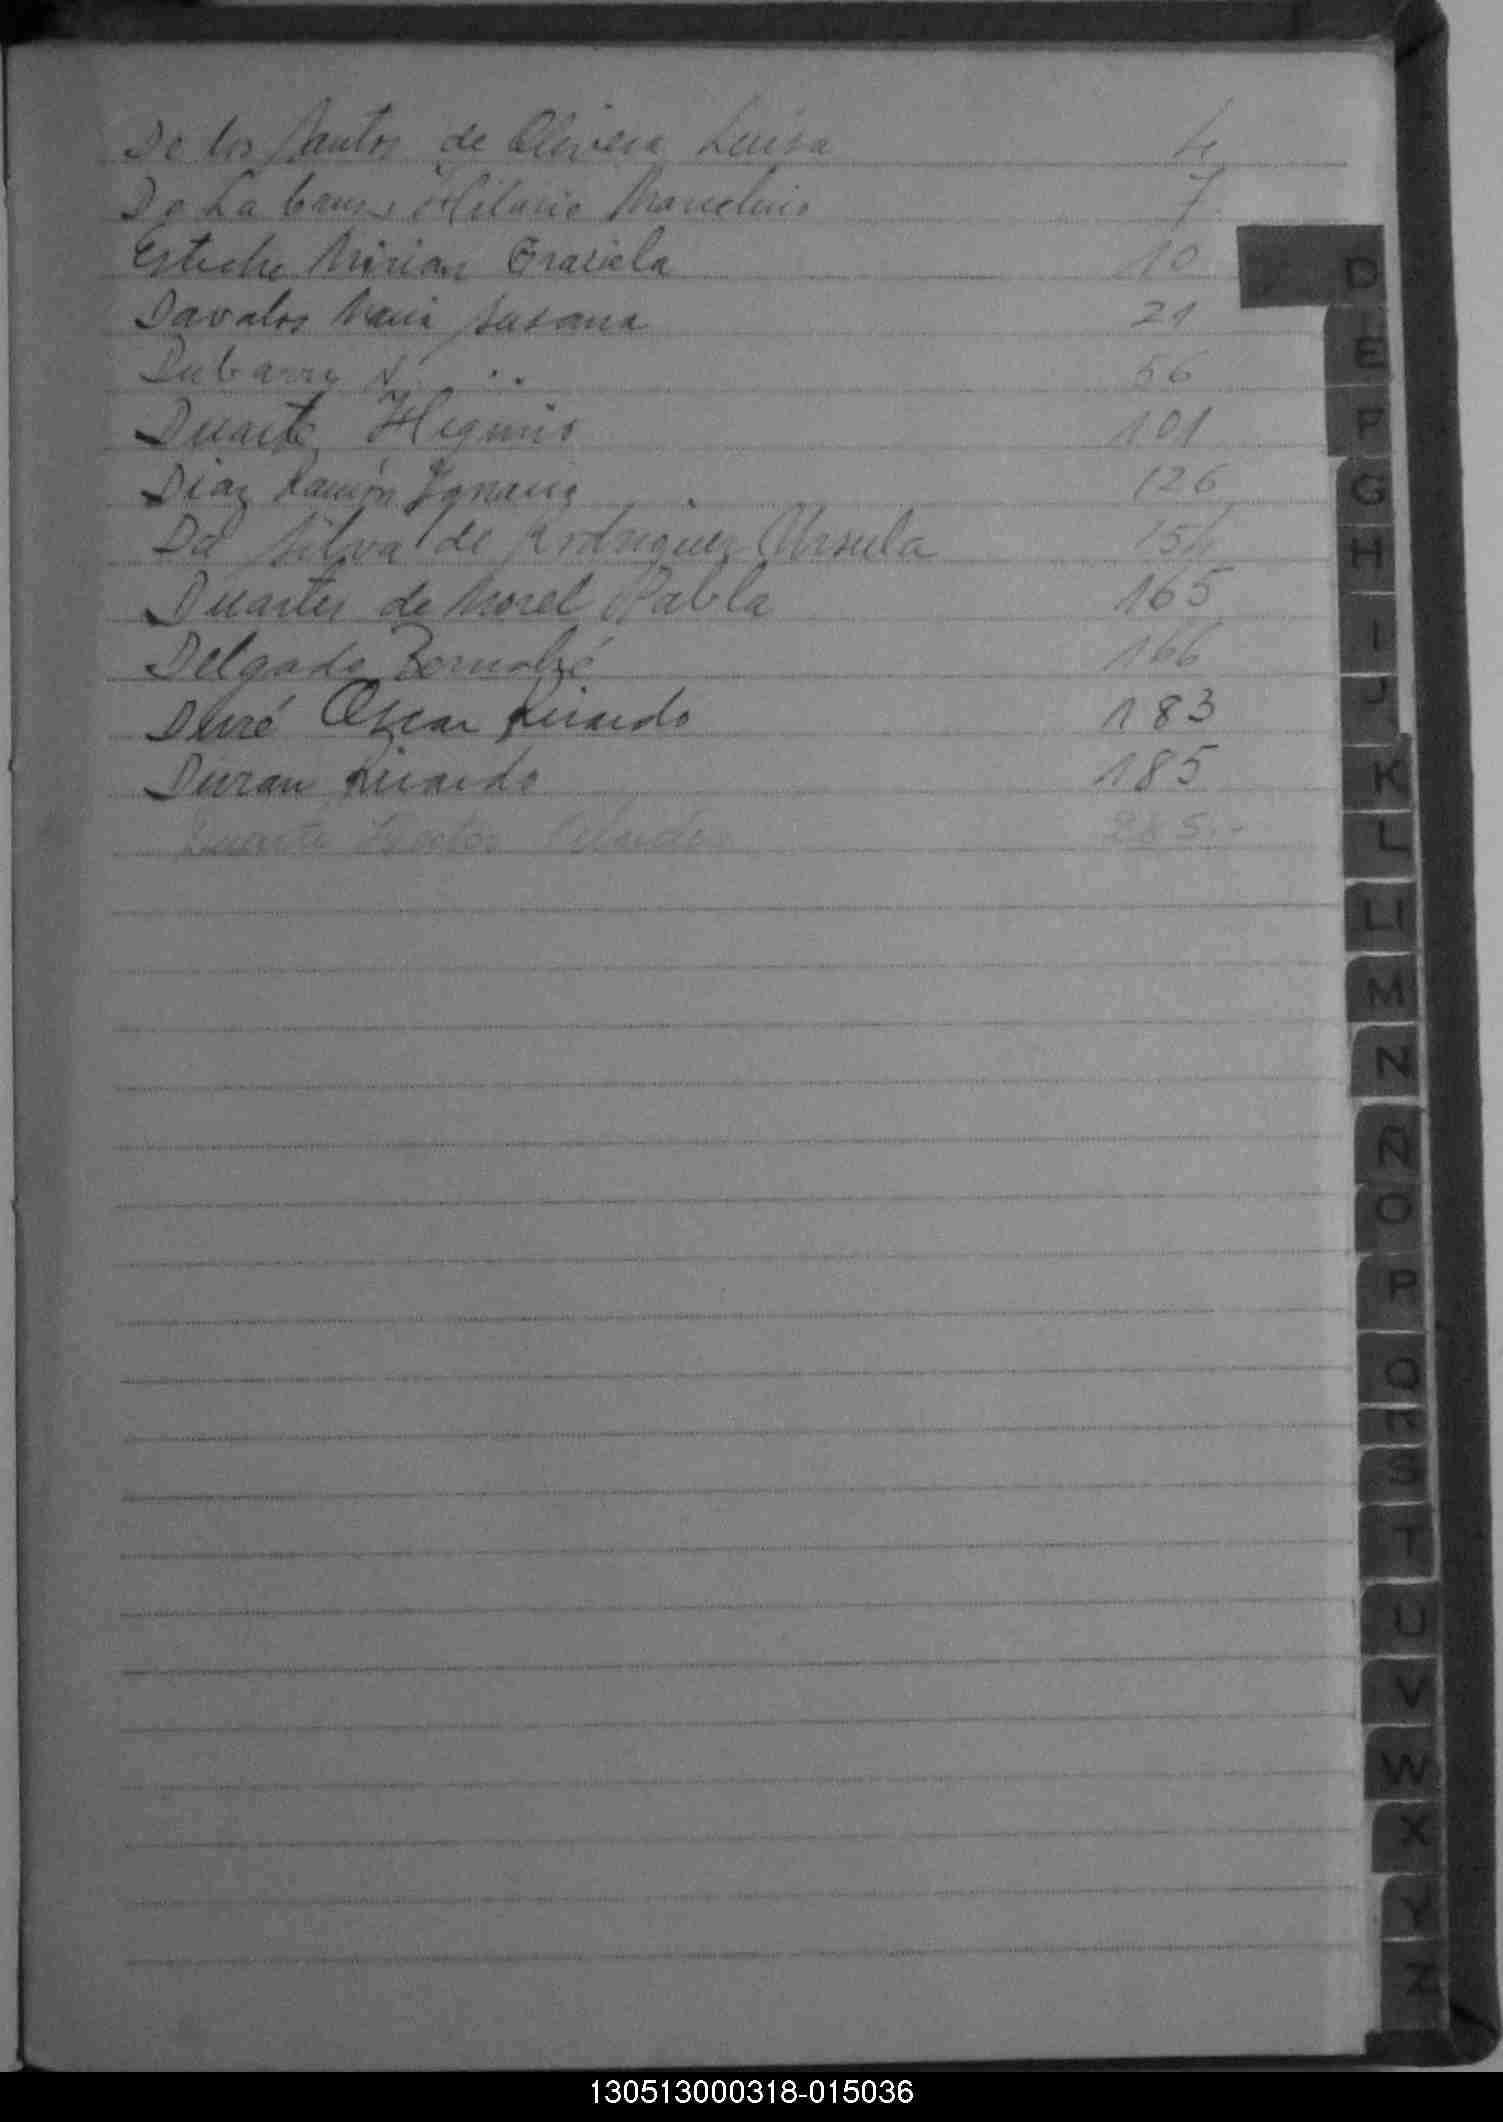 De los Santos de Olivera Luisa 4
De La Hilario Marcelino 7
Esteche Mirian Graciela 10
Davalos Maria Susana 21
Dubarry N. .. 56
Duarte Higinio 101
Diaz Ramón Ignacio 126
Da Silva de Rodriguez Ursula 154
Duartes de Morel Pabla 165
Delgado Bernabé 166
Durré Oscar Ricardo 183
Duran Ricardo 185
Duarte
D
E
F
G
H
I
J
K
L
LI
M
N
Ñ
O
P
Q
R
S
T
U
V
W
X
Y
Z
130513000318-015036